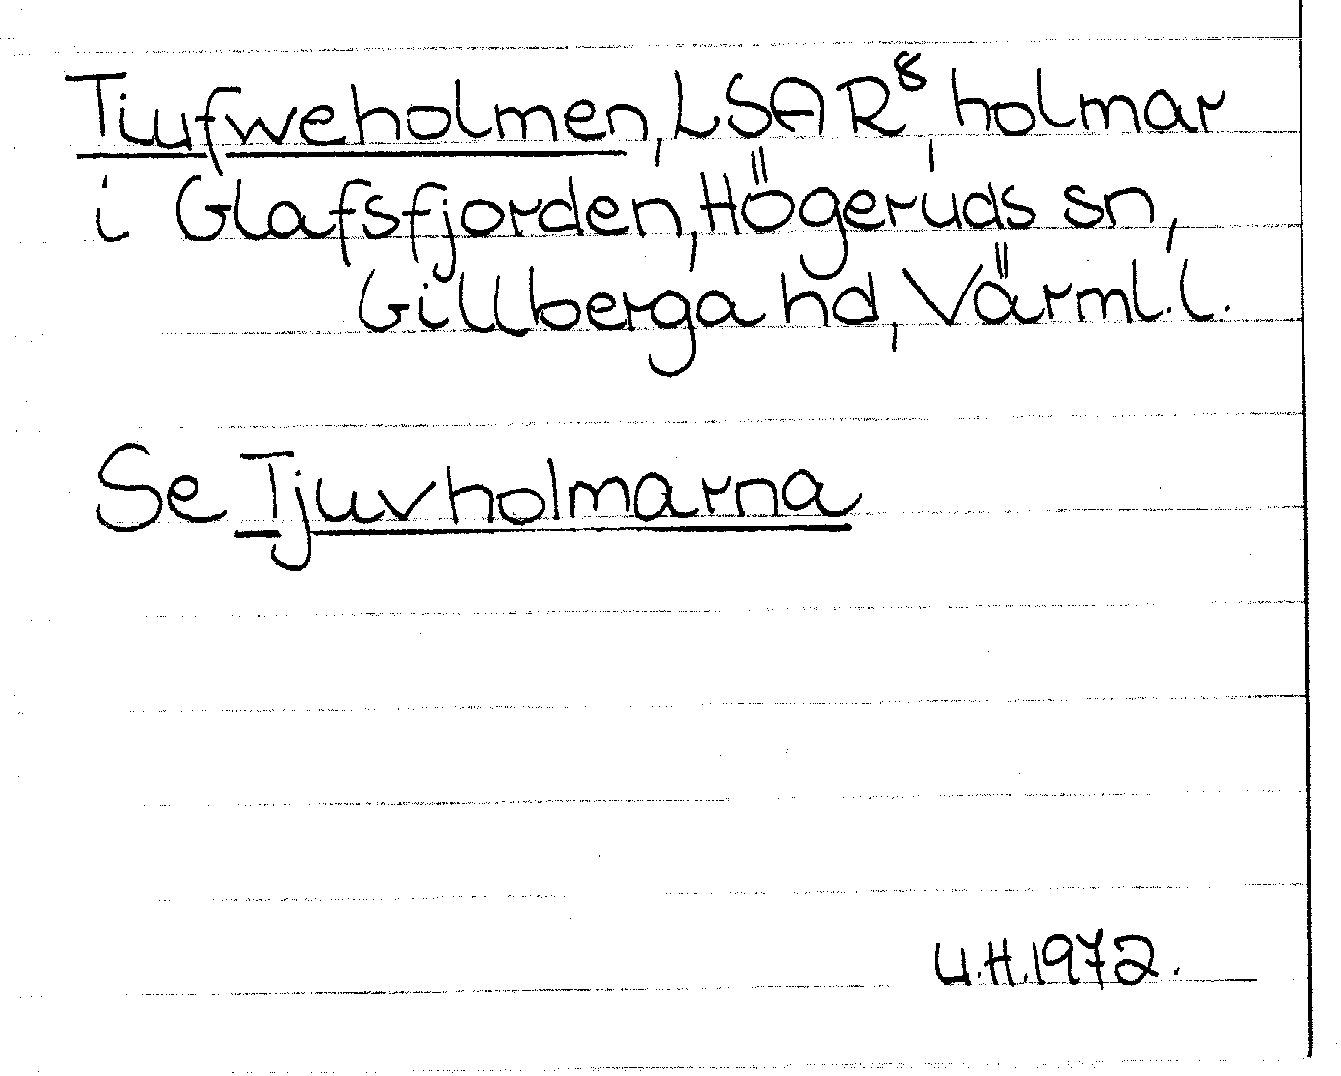 Tiufweholmen, LSAR⁸, holmar
i Glafsfjorden, Högeruds sn,
Gillberga hd, Värml. l.
Se Tjuvholmarna
U.H. 1972.